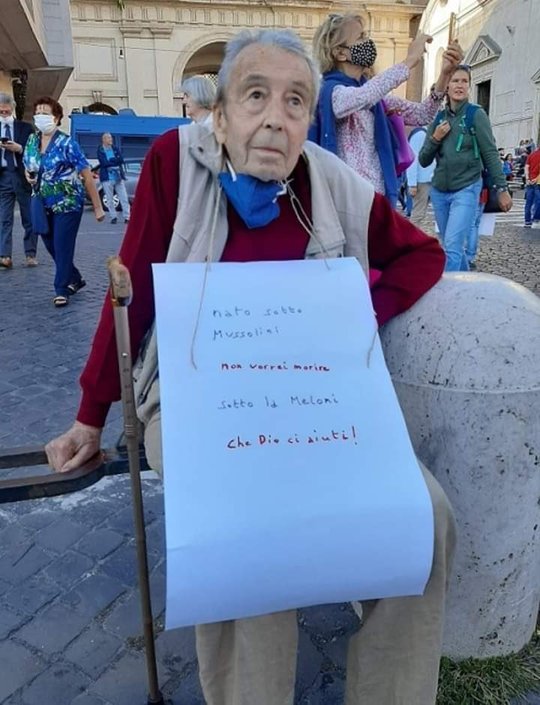 nato sotto
Mussolini
non vorrei morire
sotto la Meloni
Che Dio ci aiuti!